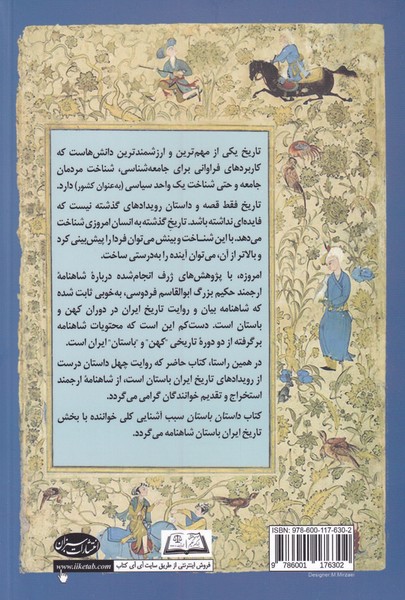 تاریخ یکی از مهم‌ترین و ارزشمندترین دانش‌هاست که
کاربردهای فراوانی برای جامعه‌شناسی، شناخت مردمان
جامعه و حتی شناخت یک واحد سیاسی (به‌عنوان کشور) دارد.
تاریخ فقط قصه و داستان رویدادهای گذشته نیست که
فایده‌ای نداشته باشد. تاریخ گذشته به انسان امروزی شناخت
می‌دهد. با این شناخت و بینش می‌توان فردا را پیش‌بینی کرد
و بالاتر از آن، می‌توان آینده را به‌درستی ساخت.
امروزه، با پژوهش‌های ژرف انجام‌شده دربارهٔ شاهنامهٔ
ارجمند حکیم بزرگ ابوالقاسم فردوسی، به‌خوبی ثابت شده
که شاهنامه بیان و روایت تاریخ ایران در دوران کهن و
باستان است. دست‌کم این است که محتویات شاهنامه
برگرفته از دو دورهٔ تاریخی "کهن" و "باستان" ایران است.
در همین راستا، کتاب حاضر که روایت چهل داستان درست
از رویدادهای تاریخ ایران باستان است، از شاهنامهٔ ارجمند
استخراج و تقدیم خوانندگان گرامی می‌گردد.
کتاب داستان باستان سبب آشنایی کلی خواننده با بخش
تاریخ ایران باستان شاهنامه می‌گردد.
ISBN: 978-600-117-630-2
9 786001 176302
Designer M Mirzaei
فروش اینترنتی از طریق سایت آی آی کتاب
www.iiketab.com